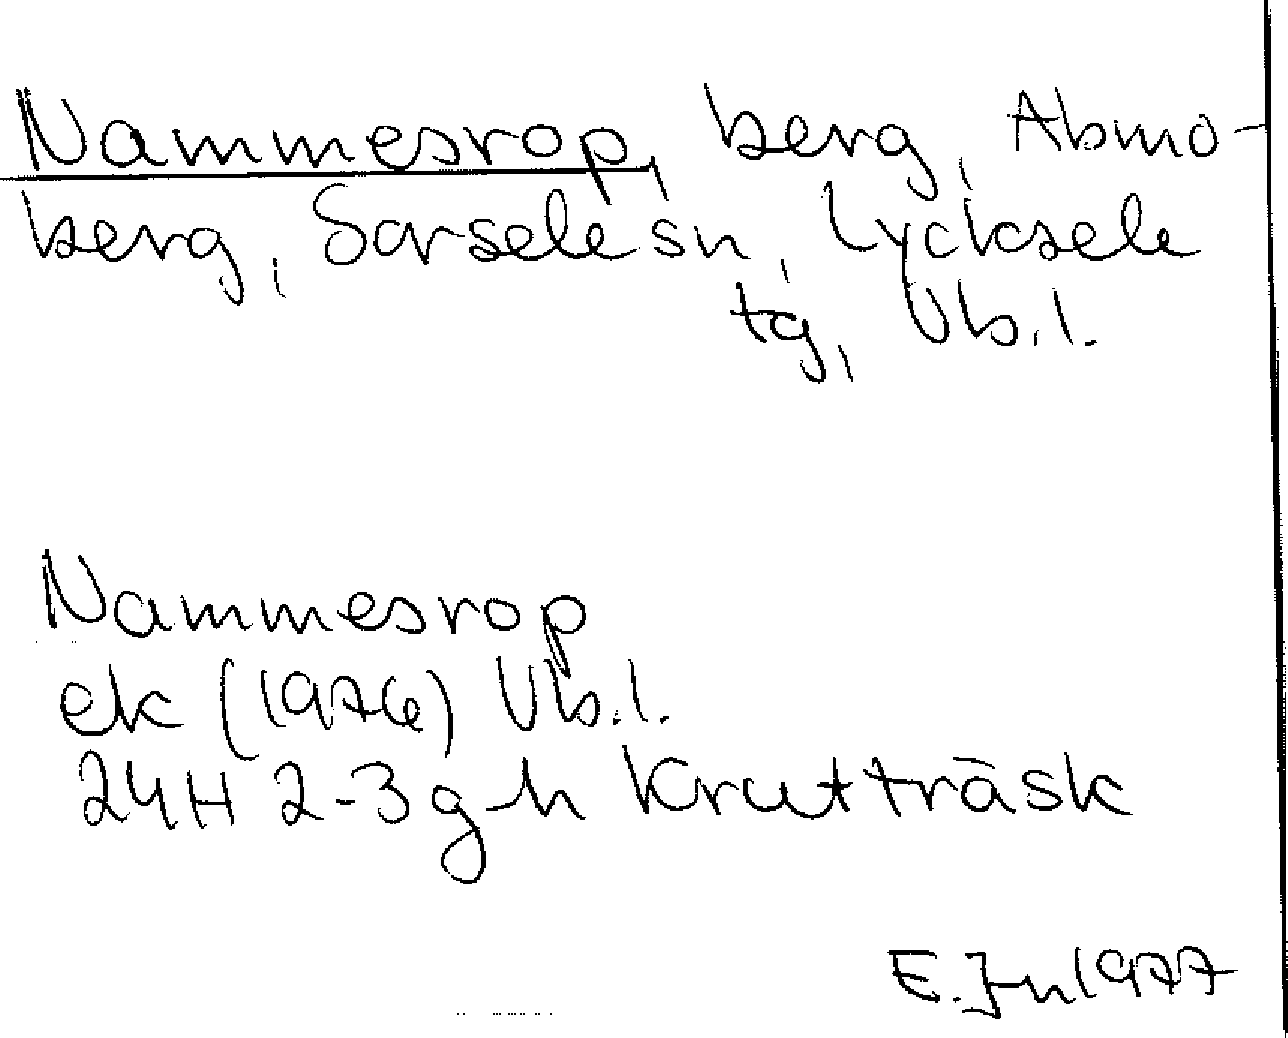 Nammesrop, berg, Abmo-
berg, Sorsele sn, Lycksele
tg, Vb.l.
Nammesrop
ek (1976) Vb.l.
24H 2-3 g-h Krutträsk
E. Jn 1977